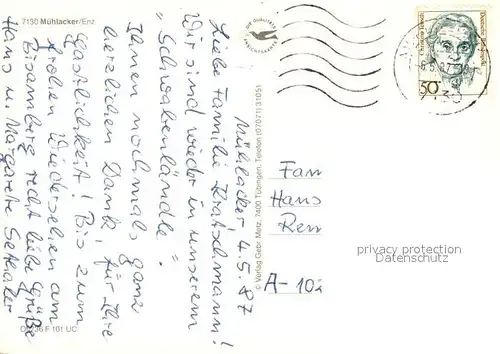 7130 Mühlacker/Enz
Mühlacker 4.5.87
Liebe Familie Kratschmann!
Wir sind wieder in unserem
"Schwabenländle".
Ihnen nochmals ganz
herzlichen Dank, für Ihre
Gastlichkeit! Bis zum
frohen Wiedersehen am
Bisamberg recht liebe Grüße
Hans u. Margarete
© Verlag Gebr. Metz, 7400 Tübingen, Telefon (07071) 31051
Fam
Hans
A-102
30
Deutsche Bundespost
privacy protection
Datenschutz